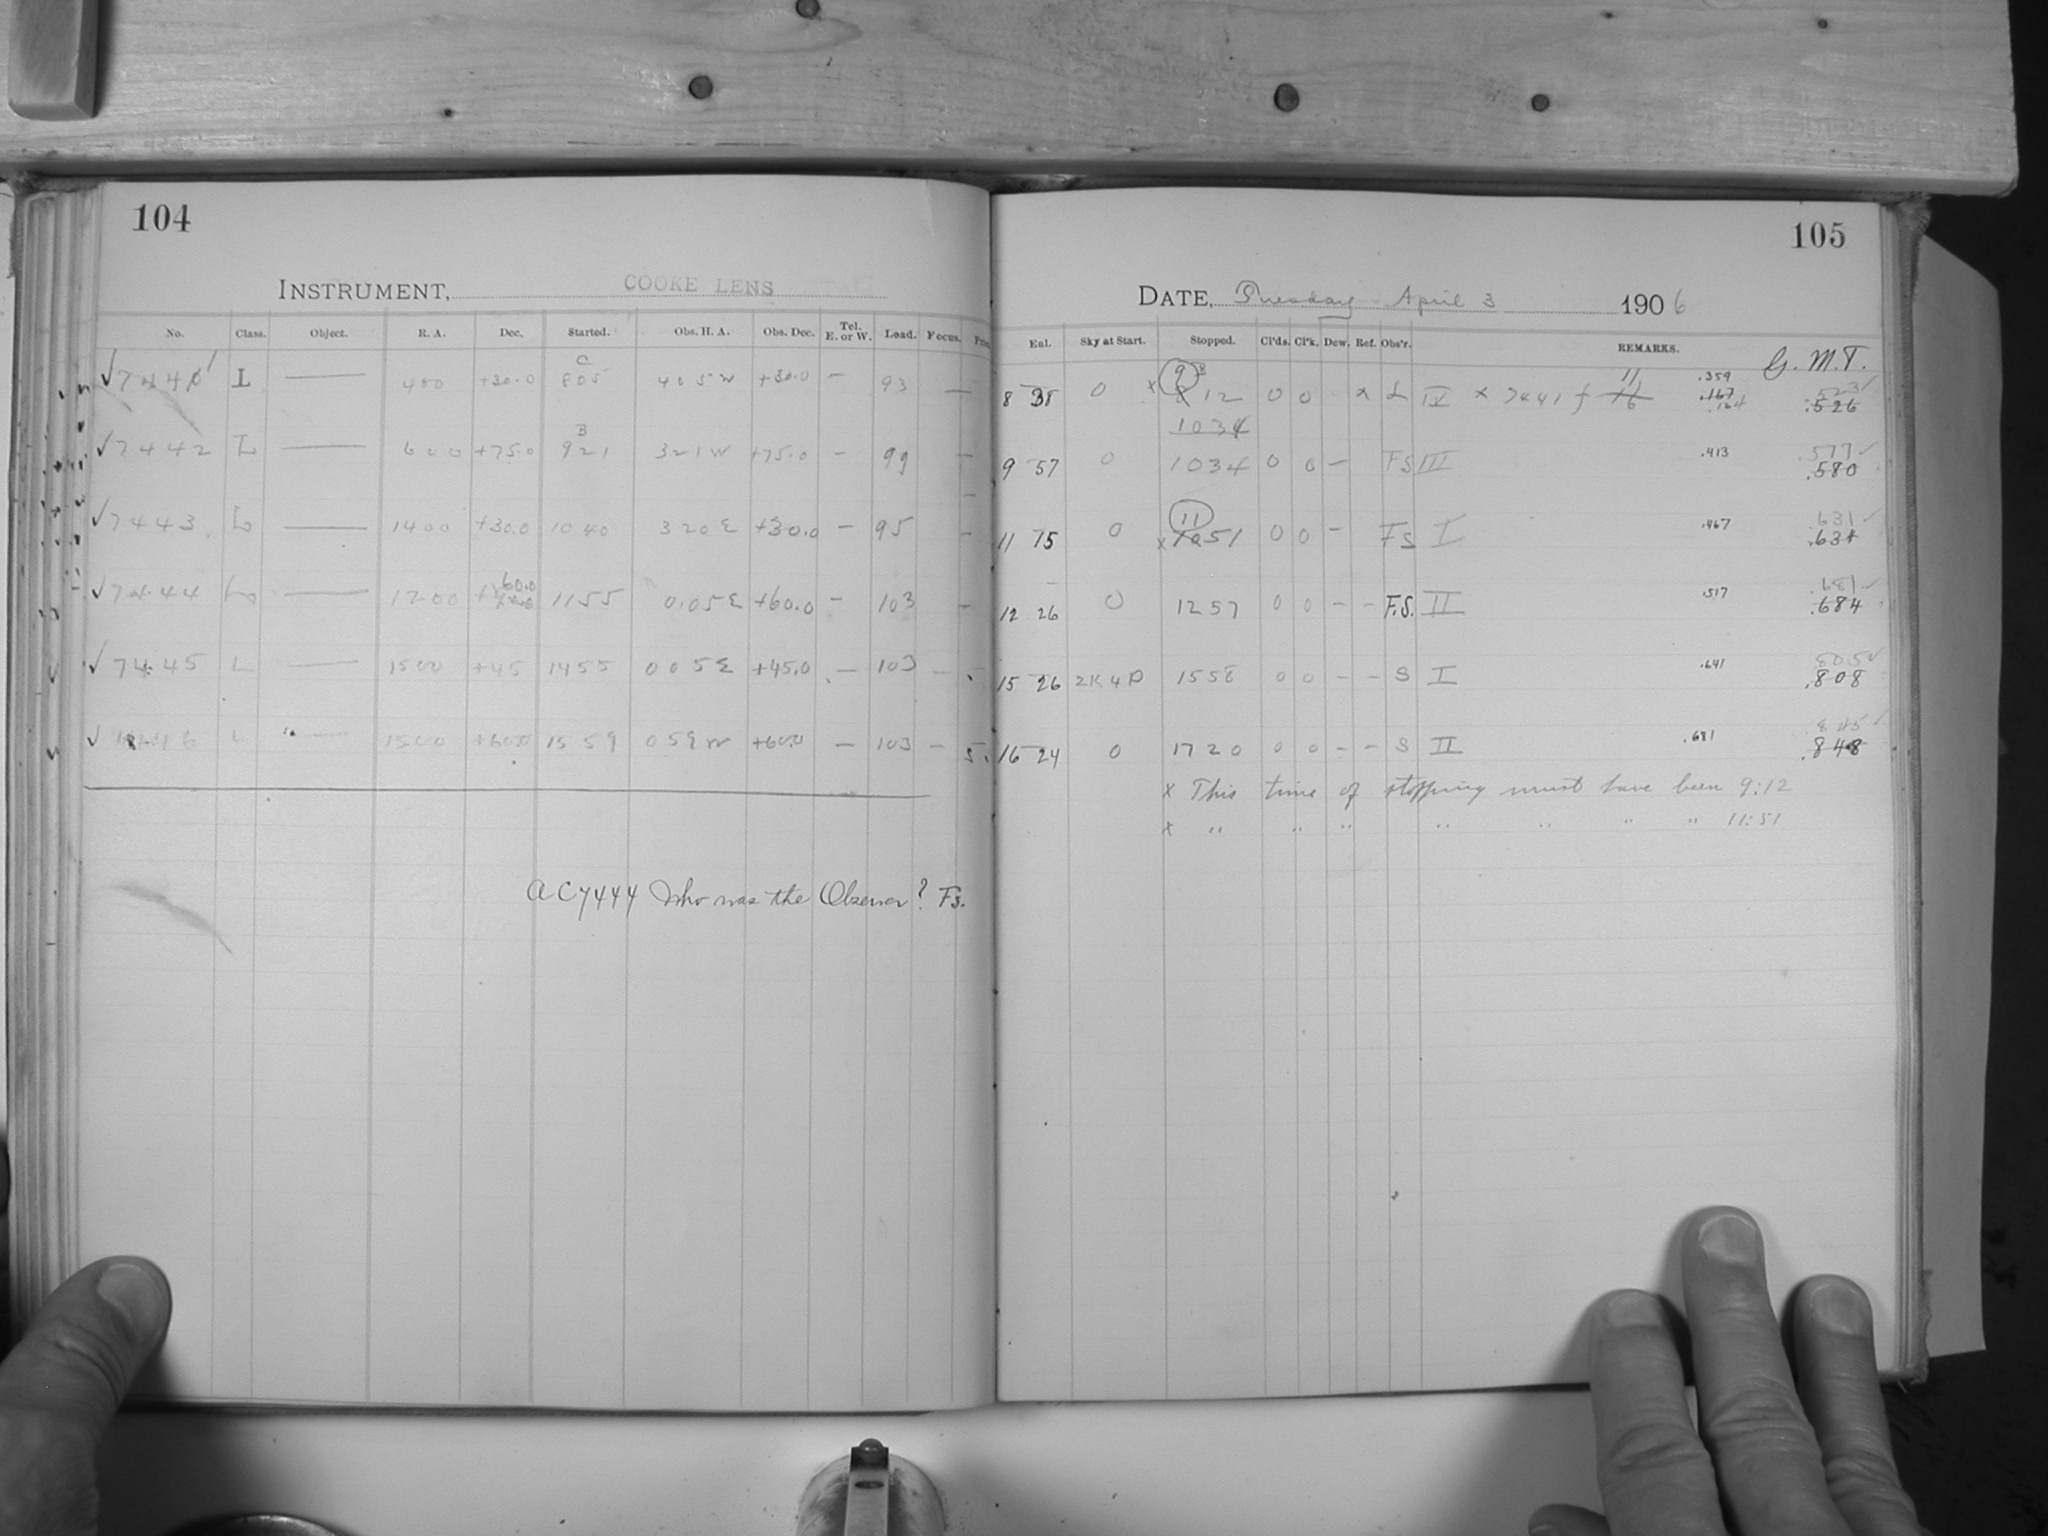 104
INSTRUMENT, COOKE LENS
No. Class. Object. R. A. Dec. Started. Obs. H. A. Obs. Dec. Tel. E. or W. Load. Focus.
C
√ L — 400 +30.0 805 405 W +30.0 — 93 —
B
√ 7442 L — 600 +75.0 921 321 W +75.0 — 99 —
√ 7443 L — 1400 +30.0 1040 320 E +30.0 — 95 —
60.0
√ 7444 L — 1200 1155 0.05 E +60.0 — 103 —
√ 7445 L — 1500 +45 1455 005 E +45.0 — 103 —
√ L — 1500 +60.0 1559 059 W +60.0 — 103 —
AC 7444 Who was the Observer? FS.
105
DATE, Tuesday April 3 1906
Eul. Sky at Start. Stopped. Cl'ds. Cl'k. Dew. Ref. Obs'r. REMARKS.
G. M. T.
9 11 .359
8 38 0 x 12 0 0 x L IV x 7441 f .167 .526
1034
9 57 0 1034 0 0 — FS III .413 .577 √
.580
11 .631 √
11 15 0 x 51 0 0 — FS I .467
.681 √
12 26 0 1257 0 0 — — F.S. II .517 .684
.805 √
15 26 2K4P 1558 0 0 — — S I .641 .808
.845 √
16 24 0 1720 0 0 — — S II .681 .848
x This time of stopping must have been 9:12
x " " " " " " " 11:51